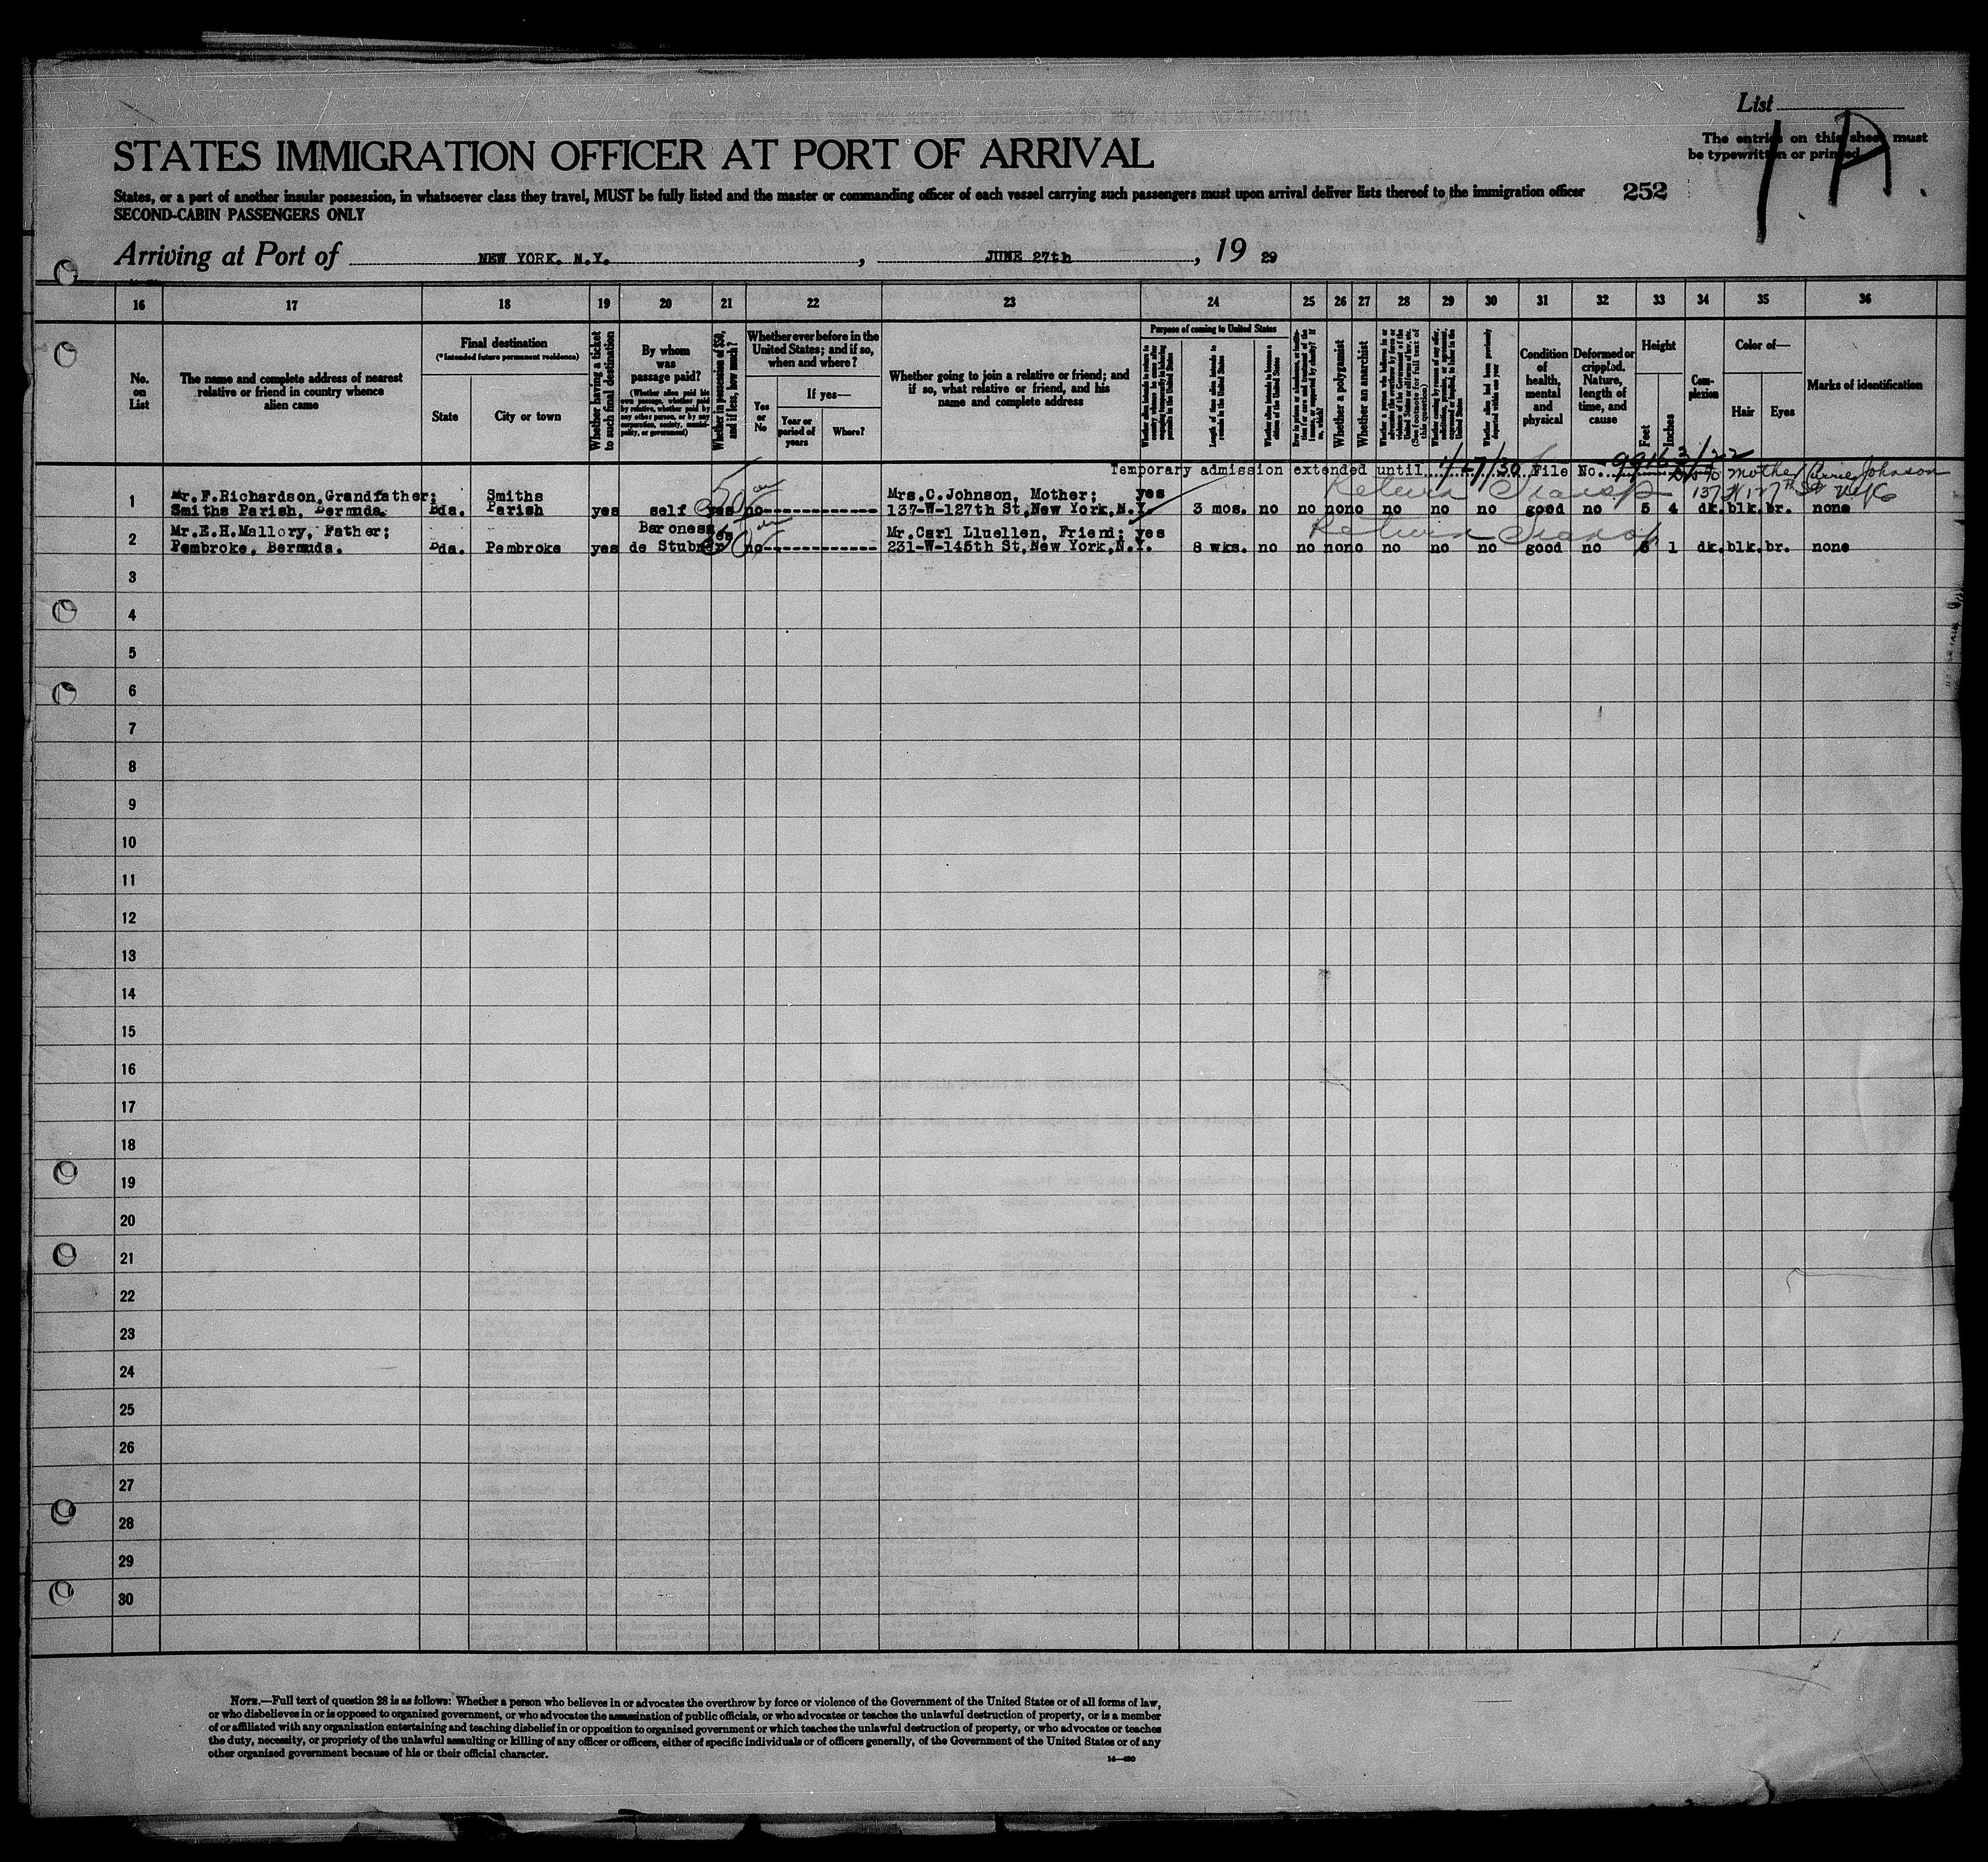 List
The entries on this sheet must
be typewritten or printed.
1 A.
STATES IMMIGRATION OFFICER AT PORT OF ARRIVAL
States, or a part of another insular possession, in whatsoever class they travel, MUST be fully listed and the master or commanding officer of each vessel carrying such passengers must upon arrival deliver lists thereof to the immigration officer
252
SECOND-CABIN PASSENGERS ONLY
Arriving at Port of NEW YORK. N.Y. , JUNE 27th , 19 29
16 17 18 19 20 21 22 23 24 25 26 27 28 29 30 31 32 33 34 35 36
No. on List
The name and complete address of nearest
relative or friend in country whence
alien came
Final destination
(*Intended future permanent residence)
State
City or town
Whether having a ticket
to such final destination
By whom
was
passage paid?
(Whether alien paid his
own passage, whether paid
by relative, whether paid by
any other person, or by any
corporation, society, munici-
pality, or government)
Whether in possession of $50,
and if less, how much?
Whether ever before in the
United States; and if so,
when and where?
Yes
or
No
If yes—
Year or
period of
years
Where?
Whether going to join a relative or friend; and
if so, what relative or friend, and his
name and complete address
Purpose of coming to United States
Length of time alien intends to
remain in the United States
Whether alien intends to become a
citizen of the United States
Whether a polygamist
Whether an anarchist
Whether alien had been previously
deported within one year
Condition
of
health,
mental
and
physical
Deformed or
crippled.
Nature,
length of
time, and
cause
Height
Feet
Inches
Com-
plexion
Color of—
Hair
Eyes
Marks of identification
Temporary admission extended until 1/27/30 File No. 99163/122
Mother Carrie Johnson
137 W 127th St NYC
Return Transp
1 Mr.F.Richardson,Grandfather; Smiths Mrs.C.Johnson, Mother; yes
Smiths Parish, Bermuda. Bda. Parish yes self yes 50 no------------- 137-W-127th St,New York,N.Y. 3 mos. no no no no no no no good no 5 4 dk. blk. br. none
Return Transp
2 Mr.E.H.Mallory, Father; Baroness yes Mr.Carl Lluellen, Friend; yes
Pembroke, Bermuda. Bda. Pembroke yes de Stubner no------------- 231-W-145th St,New York,N.Y. 8 wks. no no no no no no no good no 5 1 dk. blk. br. none
3
4
5
6
7
8
9
10
11
12
13
14
15
16
17
18
19
20
21
22
23
24
25
26
27
28
29
30
NOTE.—Full text of question 28 is as follows: Whether a person who believes in or advocates the overthrow by force or violence of the Government of the United States or of all forms of law,
or who disbelieves in or is opposed to organized government, or who advocates the assassination of public officials, or who advocates or teaches the unlawful destruction of property, or is a member
of or affiliated with any organization entertaining and teaching disbelief in or opposition to organized government or which teaches the unlawful destruction of property, or who advocates or teaches
the duty, necessity, or propriety of the unlawful assaulting or killing of any officer or officers, either of specific individuals or of officers generally, of the Government of the United States or of any
other organized government because of his or their official character.
14—430